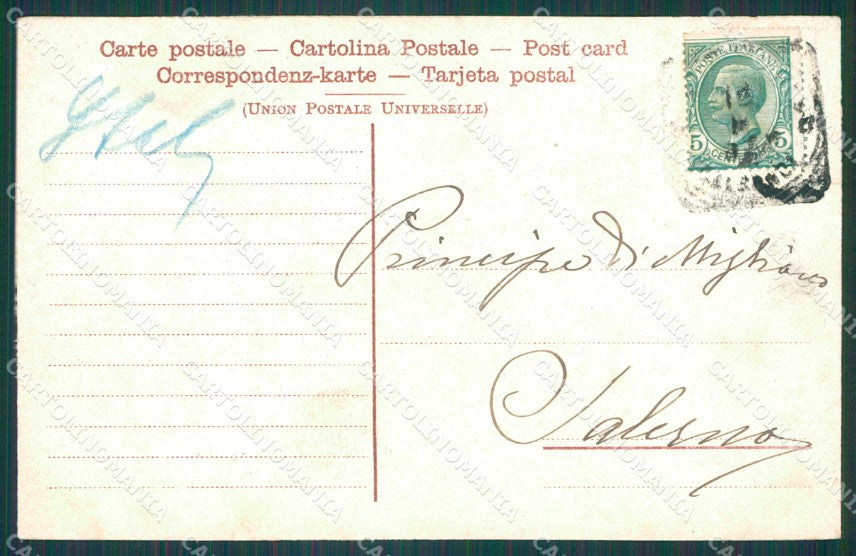 Carte postale — Cartolina Postale — Post card
Correspondenz-karte — Tarjeta postal
(Union Postale Universelle)
Italy
POSTE ITALIANE
5 CENT 5
Principe di Migliano
Salerno
CARTOLINOMANIA